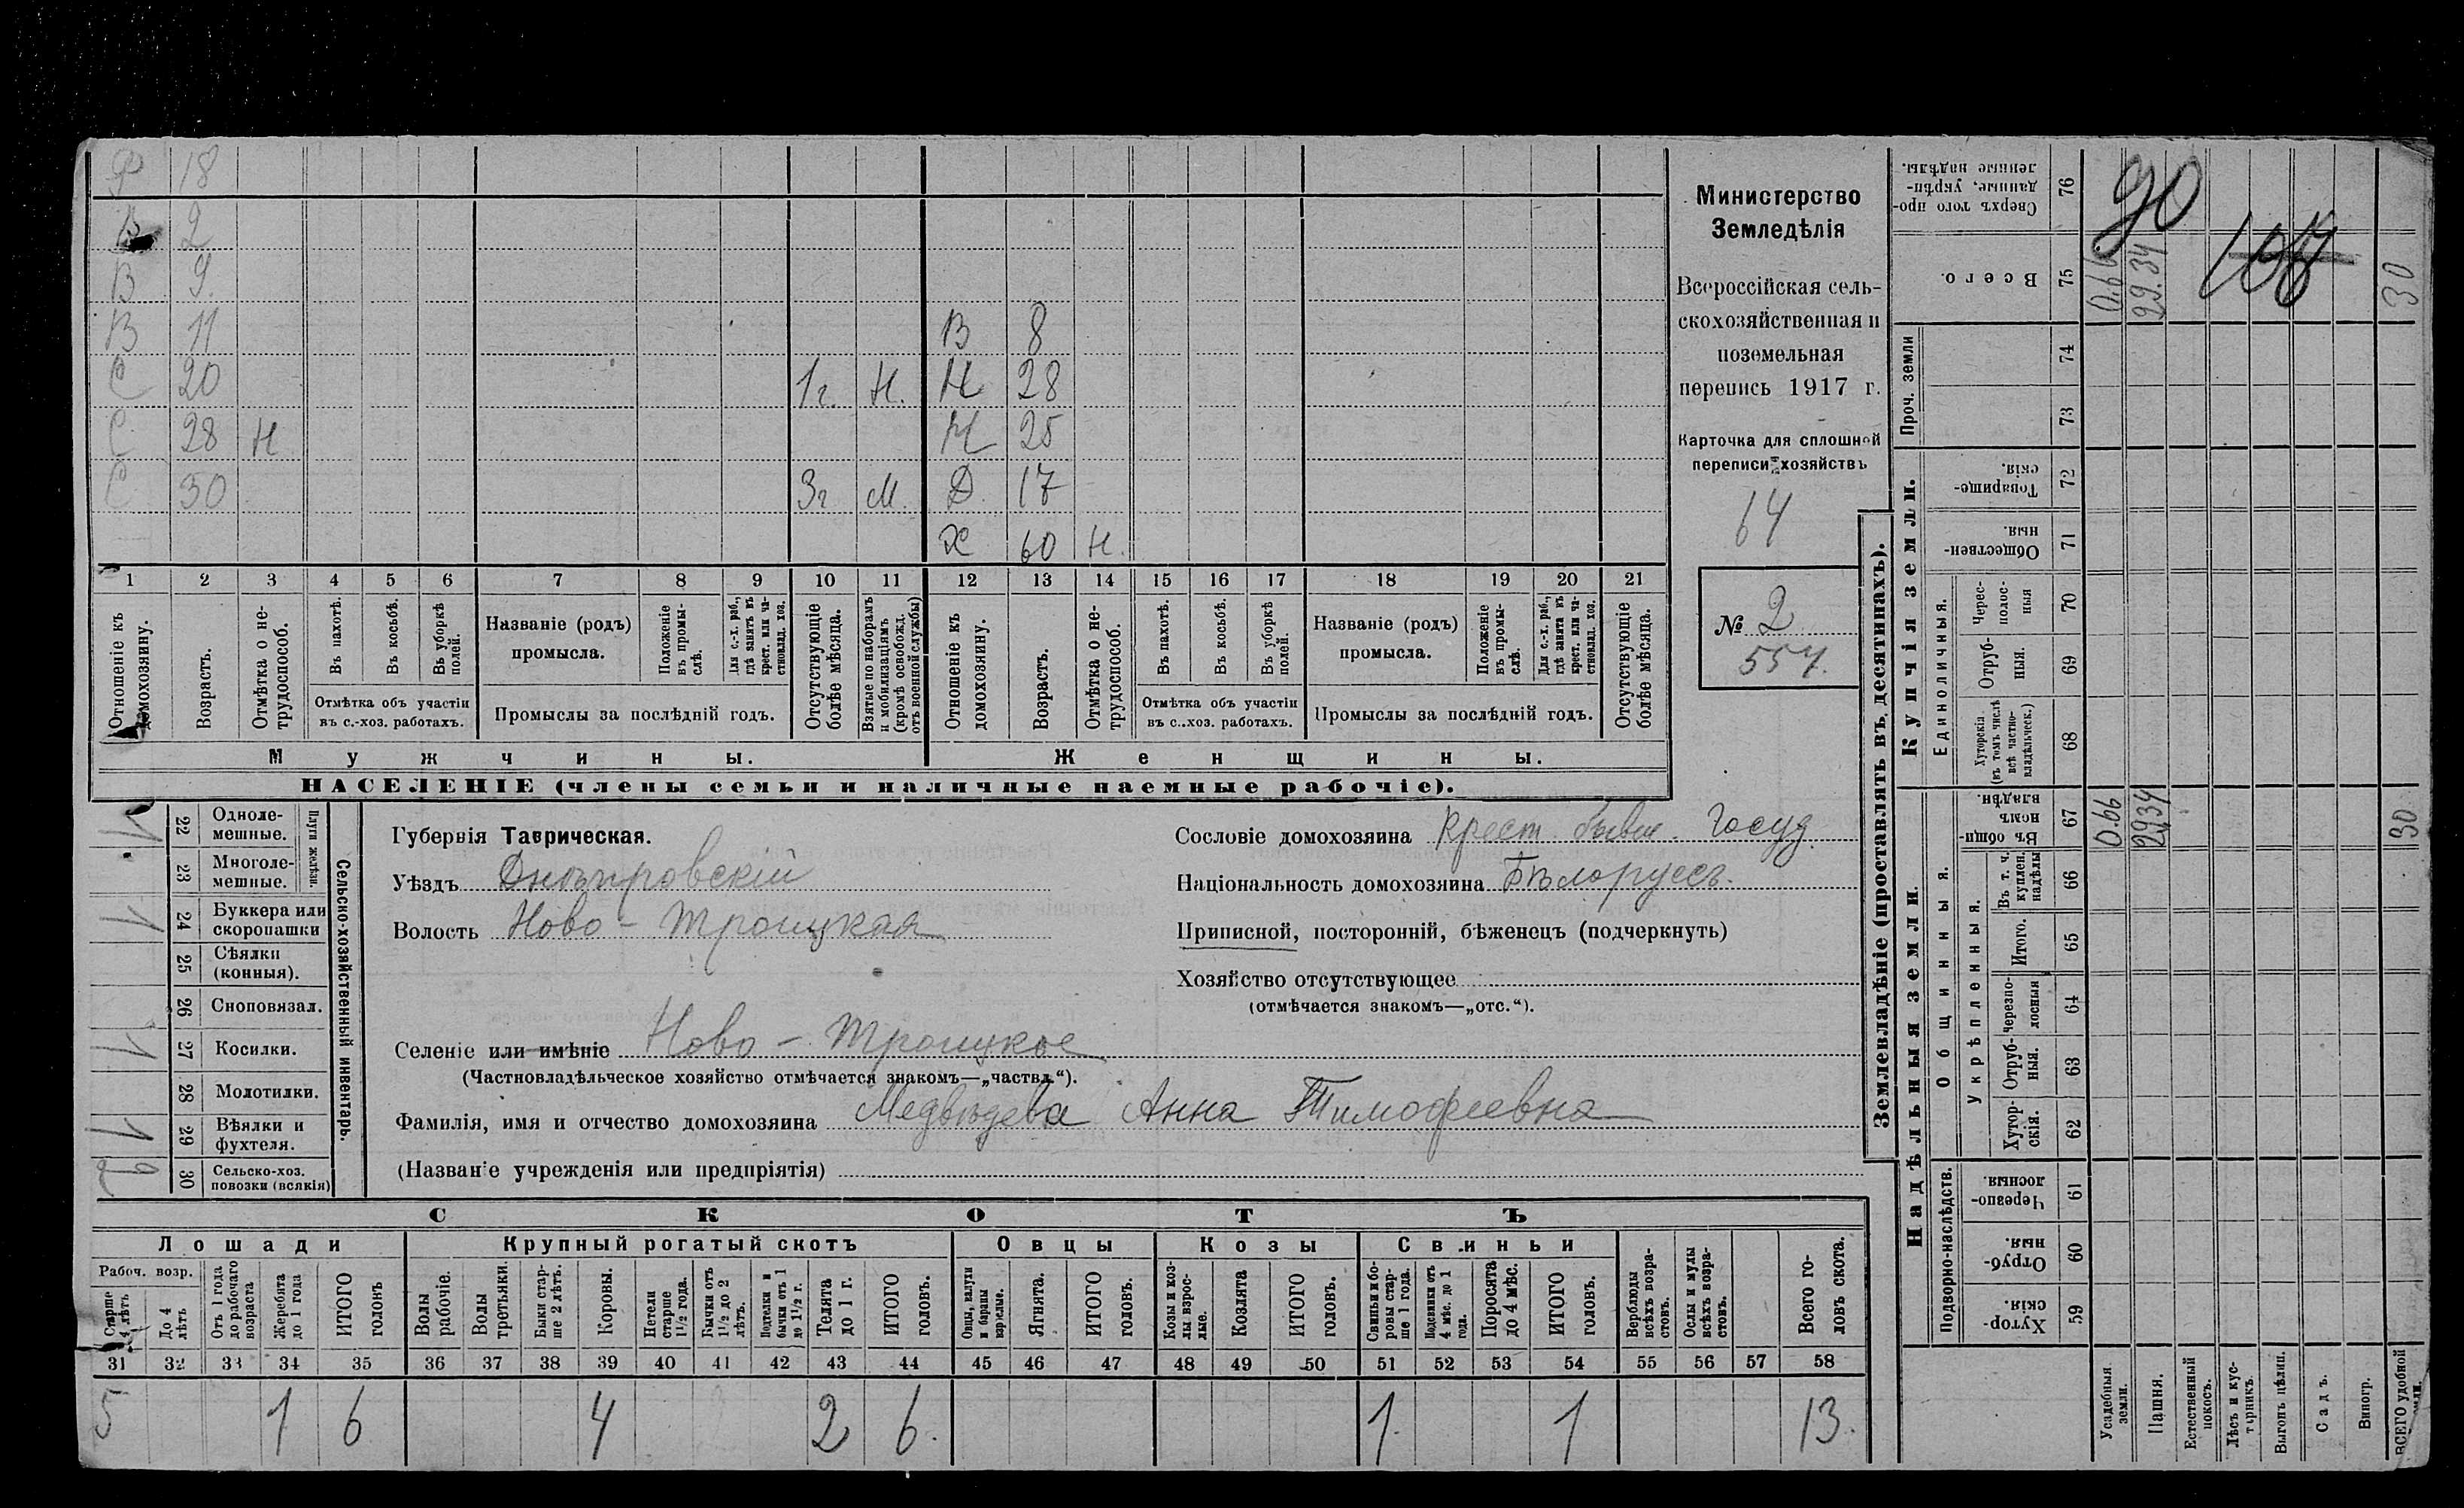 Р 18
В 2
В 9
В 11 В 8
С 20 1г. Н. Н 28
С 28 Н Н 25
С 30 3г М. Д 17
Х 60 Н.
1 2 3 4 5 6 7 8 9 10 11 12 13 14 15 16 17 18 19 20 21
Отношеніе къ домохозяину.
Возрастъ.
Отмѣтка о нетрудоспособ.
Въ пахотѣ.
Въ косьбѣ.
Въ уборкѣ полей.
Отмѣтка объ участіи въ с.-хоз. работахъ.
Названіе (родъ) промысла.
Положеніе въ промыслѣ.
Для с.-х. раб., гдѣ занятъ въ крест. или частновлад. хоз.
Промыслы за послѣдній годъ.
Отсутствующіе болѣе мѣсяца.
Взятые по наборамъ и мобилизаціямъ (кромѣ освобожд. отъ военной службы)
Отношеніе къ домохозяину.
Возрастъ.
Отмѣтка о нетрудоспособ.
Въ пахотѣ.
Въ косьбѣ.
Въ уборкѣ полей.
Отмѣтка объ участіи въ с..хоз. работахъ.
Названіе (родъ) промысла.
Положеніе въ промыслѣ.
Для с.-х. раб., гдѣ занята въ крест. или частновлад. хоз.
Промыслы за послѣдній годъ.
Отсутствующіе болѣе мѣсяца.
Мужчины. Женщины.
НАСЕЛЕНІЕ (члены семьи и наличные наемные рабочіе).
Министерство
Земледѣлія
Всероссійская сель-
скохозяйственная и
поземельная
перепись 1917 г.
Карточка для сплошной
переписи хозяйствъ
64
№ 2
557.
Сельско-хозяйственный инвентарь.
Плуги желѣзн.
1 22 Одноле-мешные.
23 Многоле-мешные.
1 24 Буккера или скоропашки
25 Сѣялки (конныя).
26 Сноповязал.
1 27 Косилки.
28 Молотилки.
1 29 Вѣялки и фухтеля.
2 30 Сельско-хоз. повозки (всякія)
Губернія Таврическая.
Уѣздъ Днѣпровскій
Волость Ново-Троицкая
Селеніе или имѣніе Ново-Троицкое
(Частновладѣльческое хозяйство отмѣчается знакомъ—„частвл“).
Фамилія, имя и отчество домохозяина Медвѣдева Анна Тимофеевна
(Названіе учрежденія или предпріятія)
Сословіе домохозяина Крест. бывш. Госуд
Національность домохозяина Бѣлоруссъ.
Приписной, посторонній, бѣженецъ (подчеркнуть)
Хозяйство отсутствующее
(отмѣчается знакомъ—„отс.“).
СКОТЪ
Лошади Крупный рогатый скотъ Овцы Козы Свиньи
Рабоч. возр.
Старше 4 лѣтъ
До 4 лѣтъ
Отъ 1 года до рабочаго возраста
Жеребята до 1 года
ИТОГО головъ
Волы рабочіе.
Волы третьяки.
Быки старше 2 лѣтъ.
Коровы.
Нетели старше 1½ года.
Бычки отъ 1½ до 2 лѣтъ.
Подтелки и бычки отъ 1 до 1½ г.
Телята до 1 г.
ИТОГО головъ.
Овцы, валухи и бараны взрослые.
Ягнята.
ИТОГО головъ.
Козы и козлы взрослые.
Козлята
ИТОГО головъ.
Свиньи и боровы старше 1 года.
Подсвинки отъ 4 мѣс. до 1 года.
Поросята до 4 мѣс.
ИТОГО головъ.
Верблюды всѣхъ возрастовъ.
Ослы и мулы всѣхъ возрастовъ.
Всего головъ скота.
31 32 33 34 35 36 37 38 39 40 41 42 43 44 45 46 47 48 49 50 51 52 53 54 55 56 57 58
5 1 6 4 2 6. 1. 1 13.
Землевладѣніе (проставлять въ десятинахъ).
Купчія земли.
Надѣльныя земли.
Сверхъ того проданные, укрѣпленные надѣлы. 76
90
Всего. 75 0.66 29.34 30
Проч. земли
74
73
Товарищескія. 72
Общественныя. 71
Единоличныя.
Черес-полос-ныя 70
Отруб-ныя. 69
Хуторскія (въ томъ числѣ всѣ частновладѣльческ.) 68
Общинныя.
Въ общинномъ владѣн. 67 0.66 29.34 30
Укрѣпленныя.
Въ т. ч. куплен. надѣлы 66
Итого. 65
Черезпо-лосныя 64
Отруб-ныя. 63
Хутор-скія. 62
Подворно-наслѣдств.
Черезпо-лосныя. 61
Отруб-ныя. 60
Хутор-скія. 59
Усадебныя земли.
Пашня.
Естественный покосъ.
Лѣсъ и кустарникъ.
Выгонъ цѣлин.
Садъ.
Виногр.
ВСЕГО удобной земли.